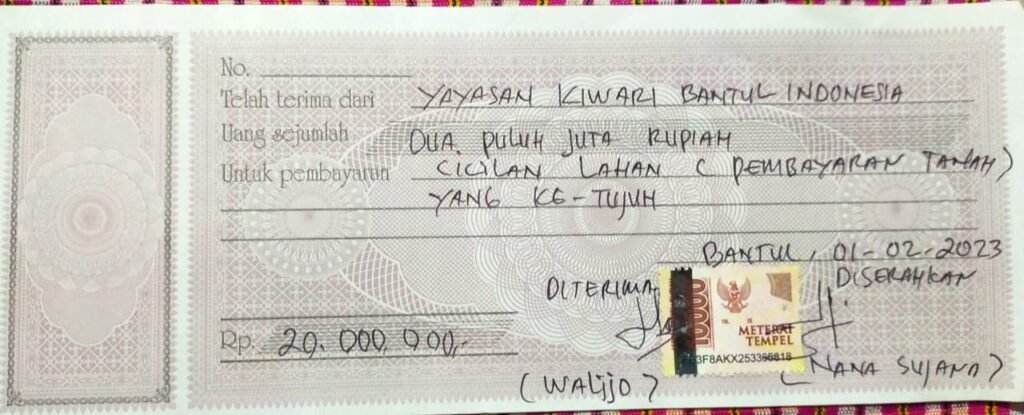 No.
Telah terima dari YAYASAN KIWARI BANTUL INDONESIA
Uang sejumlah DUA PULUH JUTA RUPIAH
Untuk pembayaran CICILAN LAHAN (PEMBAYARAN TANAH)
YANG KE-TUJUH
BANTUL, 01-02-2023
DITERIMA DISERAHKAN
10000
METERAI
TEMPEL
Rp. 20.000.000,-
(WALIJO) (NANA SUJANA)